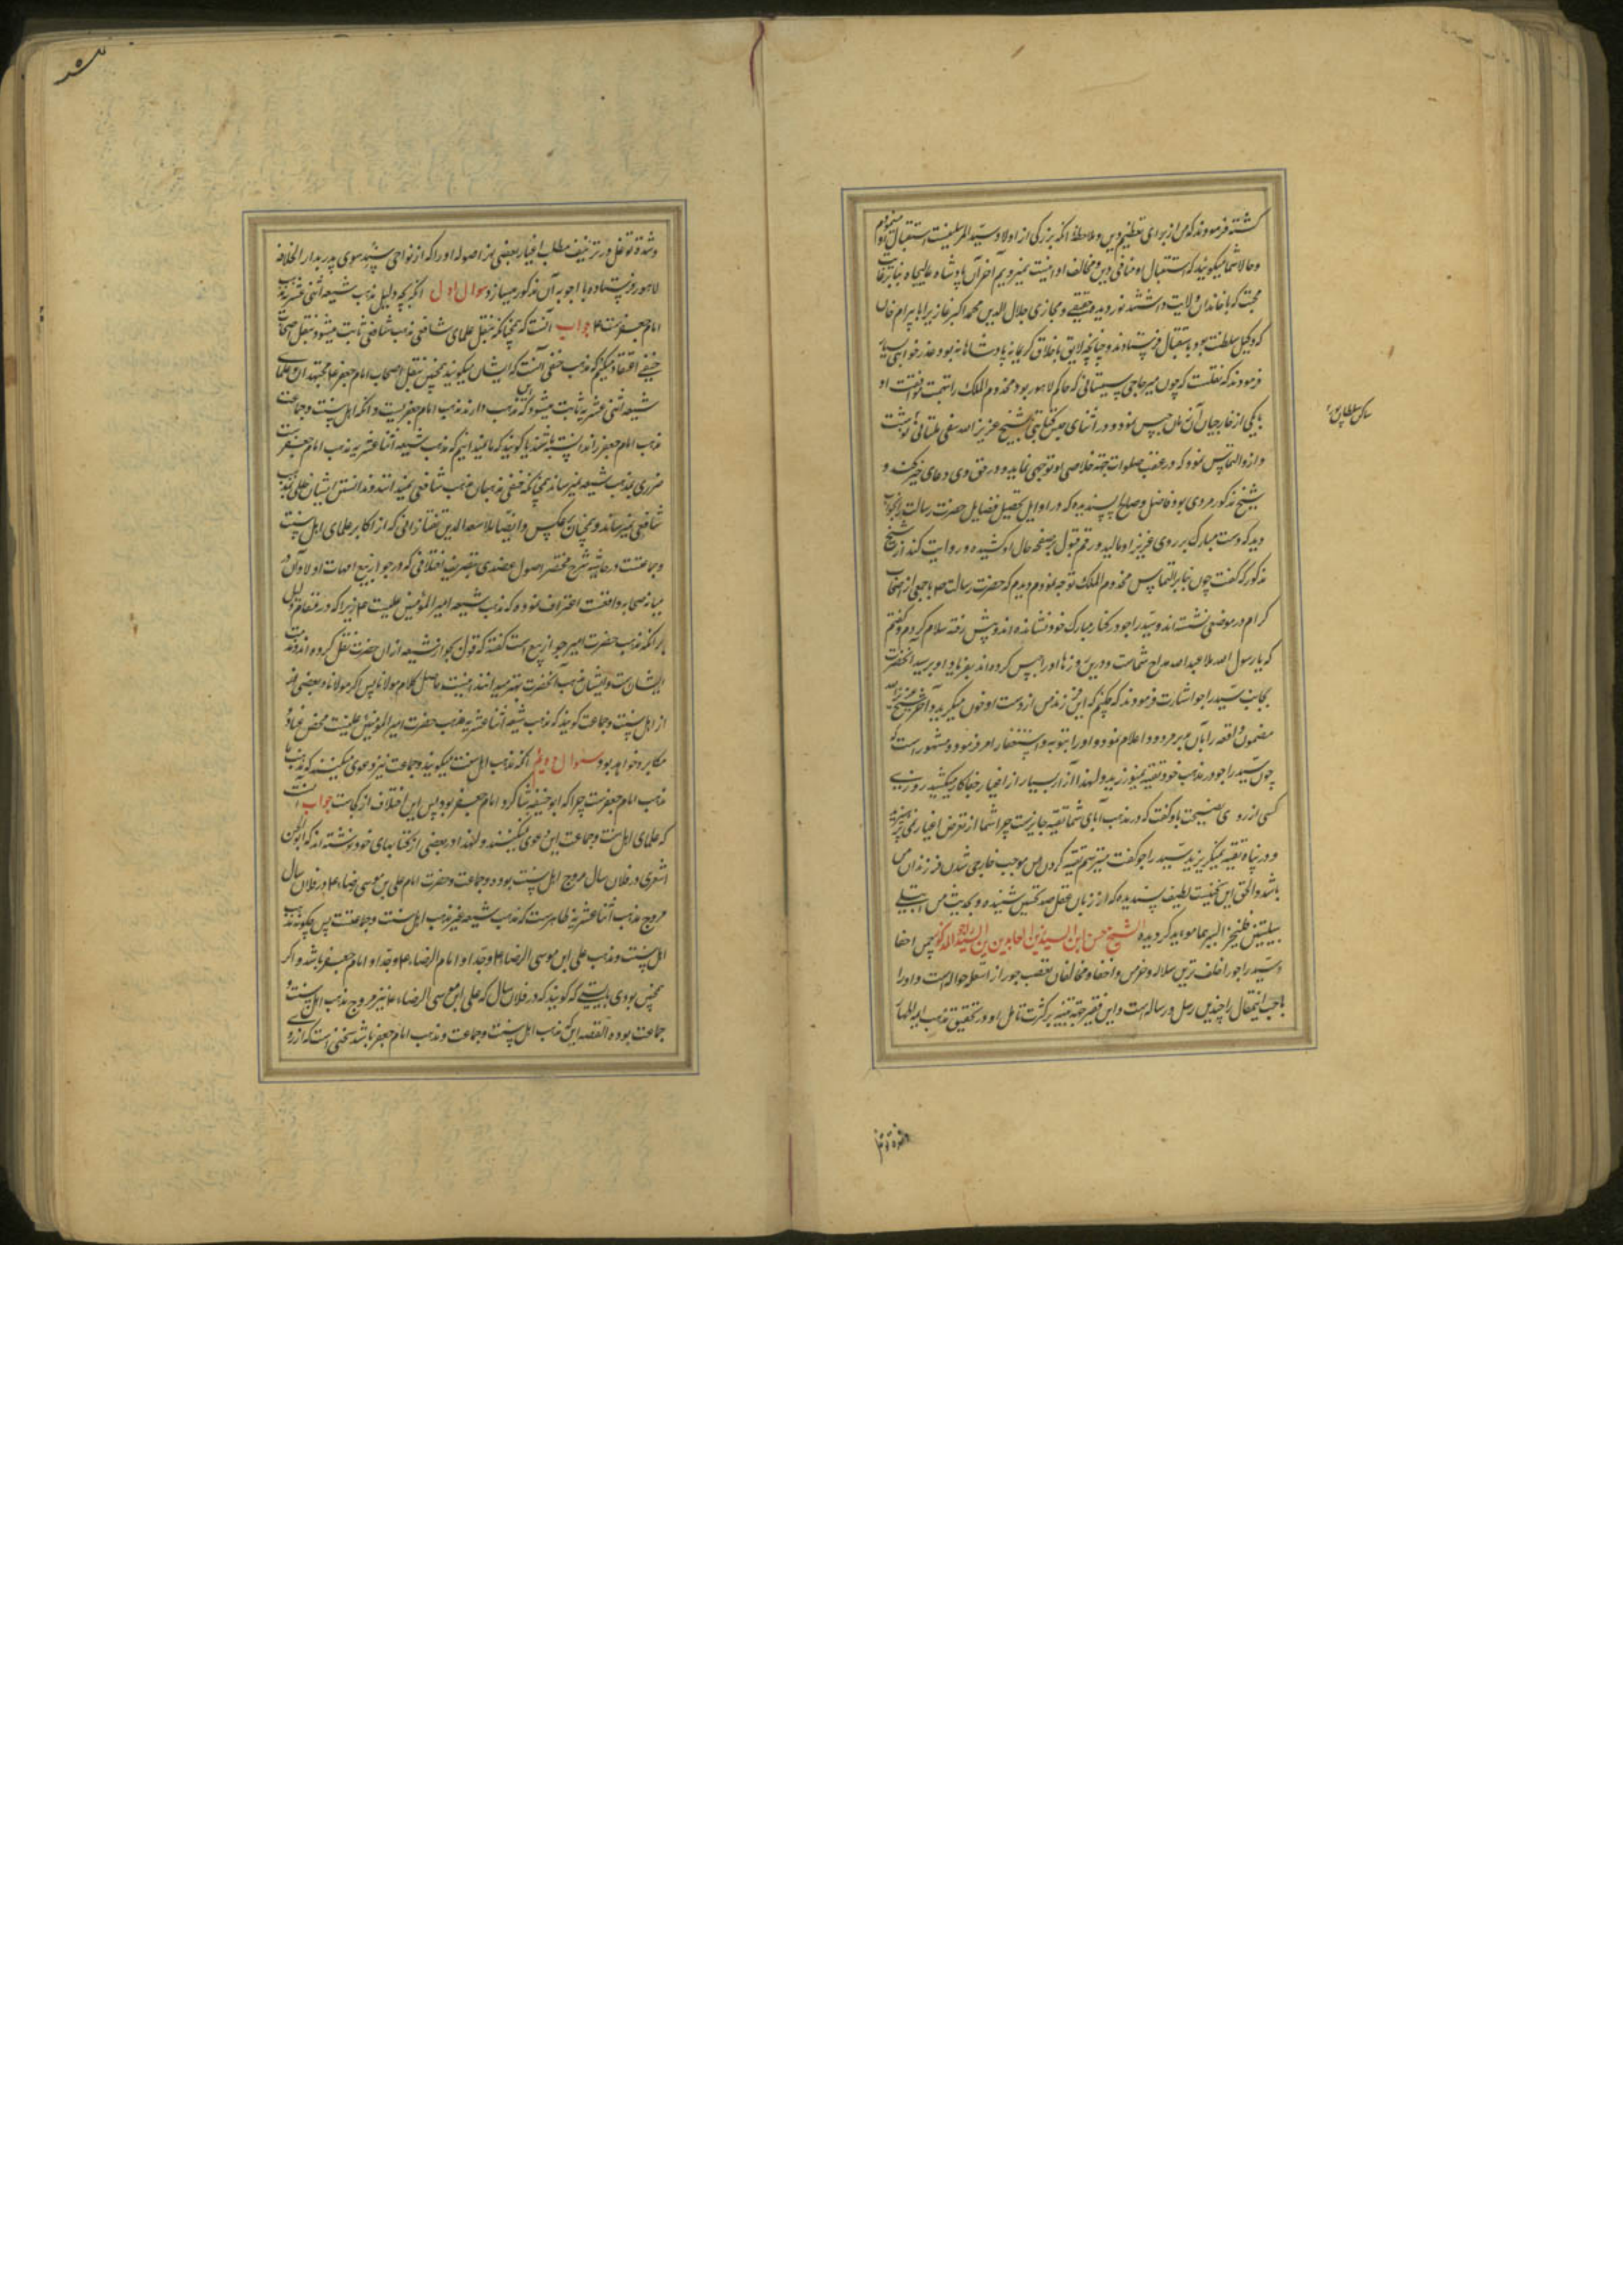 کشته فرمودند که من از برای تعظیم دین و ملاحظه آنکه بزرگی از اولاد سید المرسلینست استقبال او
و حالا شما میگویند که استقبال او منافی دین و مخالف او امنیت آخر آن پادشاه عالیجاه بنابر
محبت که با خاندان ولایت داشتند نور دیده حقیقی و مجازی جلال الدین محمد اکبر غازی را با بیرام خان
که وکیل سلطنت بود باستقبال فرستادند و چنانچه لایق باخلاق کریمانه پادشاهانه بود عذرخواهی بسیار
فرمودند که نقلست که چون میر حاجی سیستانی که حاکم لاهور بود مخدوم الملک را بتهمت موافقت او
با یکی از خارجیان آن حبس نمود و در اثنای حبس کتابتی بشیخ عزیز الله ملتانی نوشت
و از و التماس نمود که در عقب صلوات جهة خلاصی او توجهی نماید و در حق وی دعای خیر کند و
شیخ مذکور مردی بود فاضل و صالح پسندیده که در اوایل تحصیل فضایل حضرت رسالت را بخواب
دید که دست مبارک بر روی عزیز او مالید و رقم قبول بر صفحه حال او کشیده و روایت کند از شیخ
مذکور که گفت چون بنابر التماس مخدوم الملک توجه نمودم دیدم که حضرت رسالت ص با جمعی از اصحاب
کرام در موضعی نشسته اند و سید راجو در کنار مبارک خود نشانده اند و پیش رفته سلام کردم و گفتم
که یا رسول الله ملا عبدالله مداح شماست و درین روزها او را حبس کرده اند بفریاد او برسید آنحضرت
بجانب سید راجو اشارت فرمودند که چکنم که این فرزند من از دست او خون میگرید و آخر شیخ عزیز الله
مضمون واقعه را بآن مبر مردود اعلام نمود و او را بتوبه و استغفار امر فرمود و مشهور است که
چون سید راجو در مذهب خود تقیه نمیورزید و لهذا آزار بسیار از اغیار جفاکار میکشید روزی
کسی از روی نصیحت باو گفت که در مذهب آبای شما تقیه جایزست چرا شما از تعرض اغیار نمی پرهیزید
و در پناه تقیه نمیگریزید سید راجو گفت میترسم تقیه کردن من موجب خارجی شدن فرزندان من
باشد و الحق این سخنیست لطیف پسندیده که از زبان عقل صد تحسین شنیده و بحدیث من ابتلی
ببلیتین فلیختر الیسرهما موید گردیده الشیخ حسن ابن السید زین العابدین بن السید راجو
و سید راجو را خلف ترین سلاله و مخالفان تعصب جور از اسئله حواله است و او را
باحجب اینمقال را چندین رسل و رساله است و این فقیر جهة تنبیه بر کثرت تامل او در تحقیق مذهب ایمه اطهار
ساکن سلطانپور
و شدة توغل در تزییف مطلب اغیار بعضی از اصوله او را که از نواحی سوی پدر بدار الخلافه
لاهور فرستاده با اجوبه آن مذکور میسازد سوال اول آنکه بچه دلیل مذهب شیعه اثنی عشریه مذهب
امام جعفرست ع جواب آنست که همچنانکه بنقل علمای شافعی مذهب شافعی ثابت میشود و بنقل اصحاب
حنفی اعتقاد میکنیم که مذهب حنفی آنست که ایشان میگویند همچنین بنقل اصحاب امام جعفر ع مجتهدان و علمای
شیعه اثنی عشریه ثابت میشود که این مذهب دارند مذهب امام جعفریست و آنکه اهل سنت و جماعت
مذهب امام جعفر را ندانسته باشند یا گویند که ما نمیدانیم که مذهب شیعه اثنا عشریه مذهب امام جعفرست
ضرری بمذهب شیعه نمیرساند همچنانکه حنفی مذهبان مذهب شافعی نمیدانند و ندانستن ایشان خللی بمذهب
شافعی نمیرساند و همچنان بر عکس و ایضا ملا سعد الدین تفتازانی که از اکابر علمای اهل سنت
و جماعتست در حاشیه شرح مختصر اصول عضدی بتقریب اختلافی که در جواز بیع امهات اولاد آن
میانه صحابه واقعست اعتراف نموده که مذهب شیعه امیر المؤمنین علیست ع زیرا که در مقام دلیل
بر آنکه مذهب حضرت امیر جواز بیع است گفته که قول بجواز شیعه از آن حضرت نقل کرده اند
ایشان مذهب آنحضرت بهتر میدانند اینست حاصل کلام مولانا پس اگر مولانا و بعضی
از اهل سنت و جماعت گویند که مذهب شیعه اثنا عشریه مذهب حضرت امیر المومنین علیست محض عناد و
مکابره خواهد بود سوال دویم آنکه مذهب اهل سنت میگویند و جماعت نیز دعوی میکنند که مذهب ما
مذهب امام جعفرست چرا که ابو حنیفه شاگرد امام جعفر بود پس این اختلاف از کجاست جواب آنست
که علمای اهل سنت و جماعت این دعوی نمیکنند و لهذا در بعضی از کتابهای خود نوشته اند که ابوالحسن
اشعری در فلان سال مروج اهل سنت بوده و جماعت و حضرت امام علی بن موسی رضا ع در فلان سال
مروج مذهب اثنا عشریه ظاهرست که مذهب شیعه غیر مذهب اهل سنت و جماعتست پس چگونه مذهب
اهل سنت مذهب علی ابن موسی الرضا ع و جد او امام الرضا ع و جد او امام جعفر باشد و اگر
همچنین بودی بایستی که گویند که در فلان سال که علی ابن موسی الرضا ع نیز مروج مذهب اهل سنت و
جماعت بوده القصه این که مذهب اهل سنت و جماعت مذهب امام جعفر باشد سخنی است که از روی